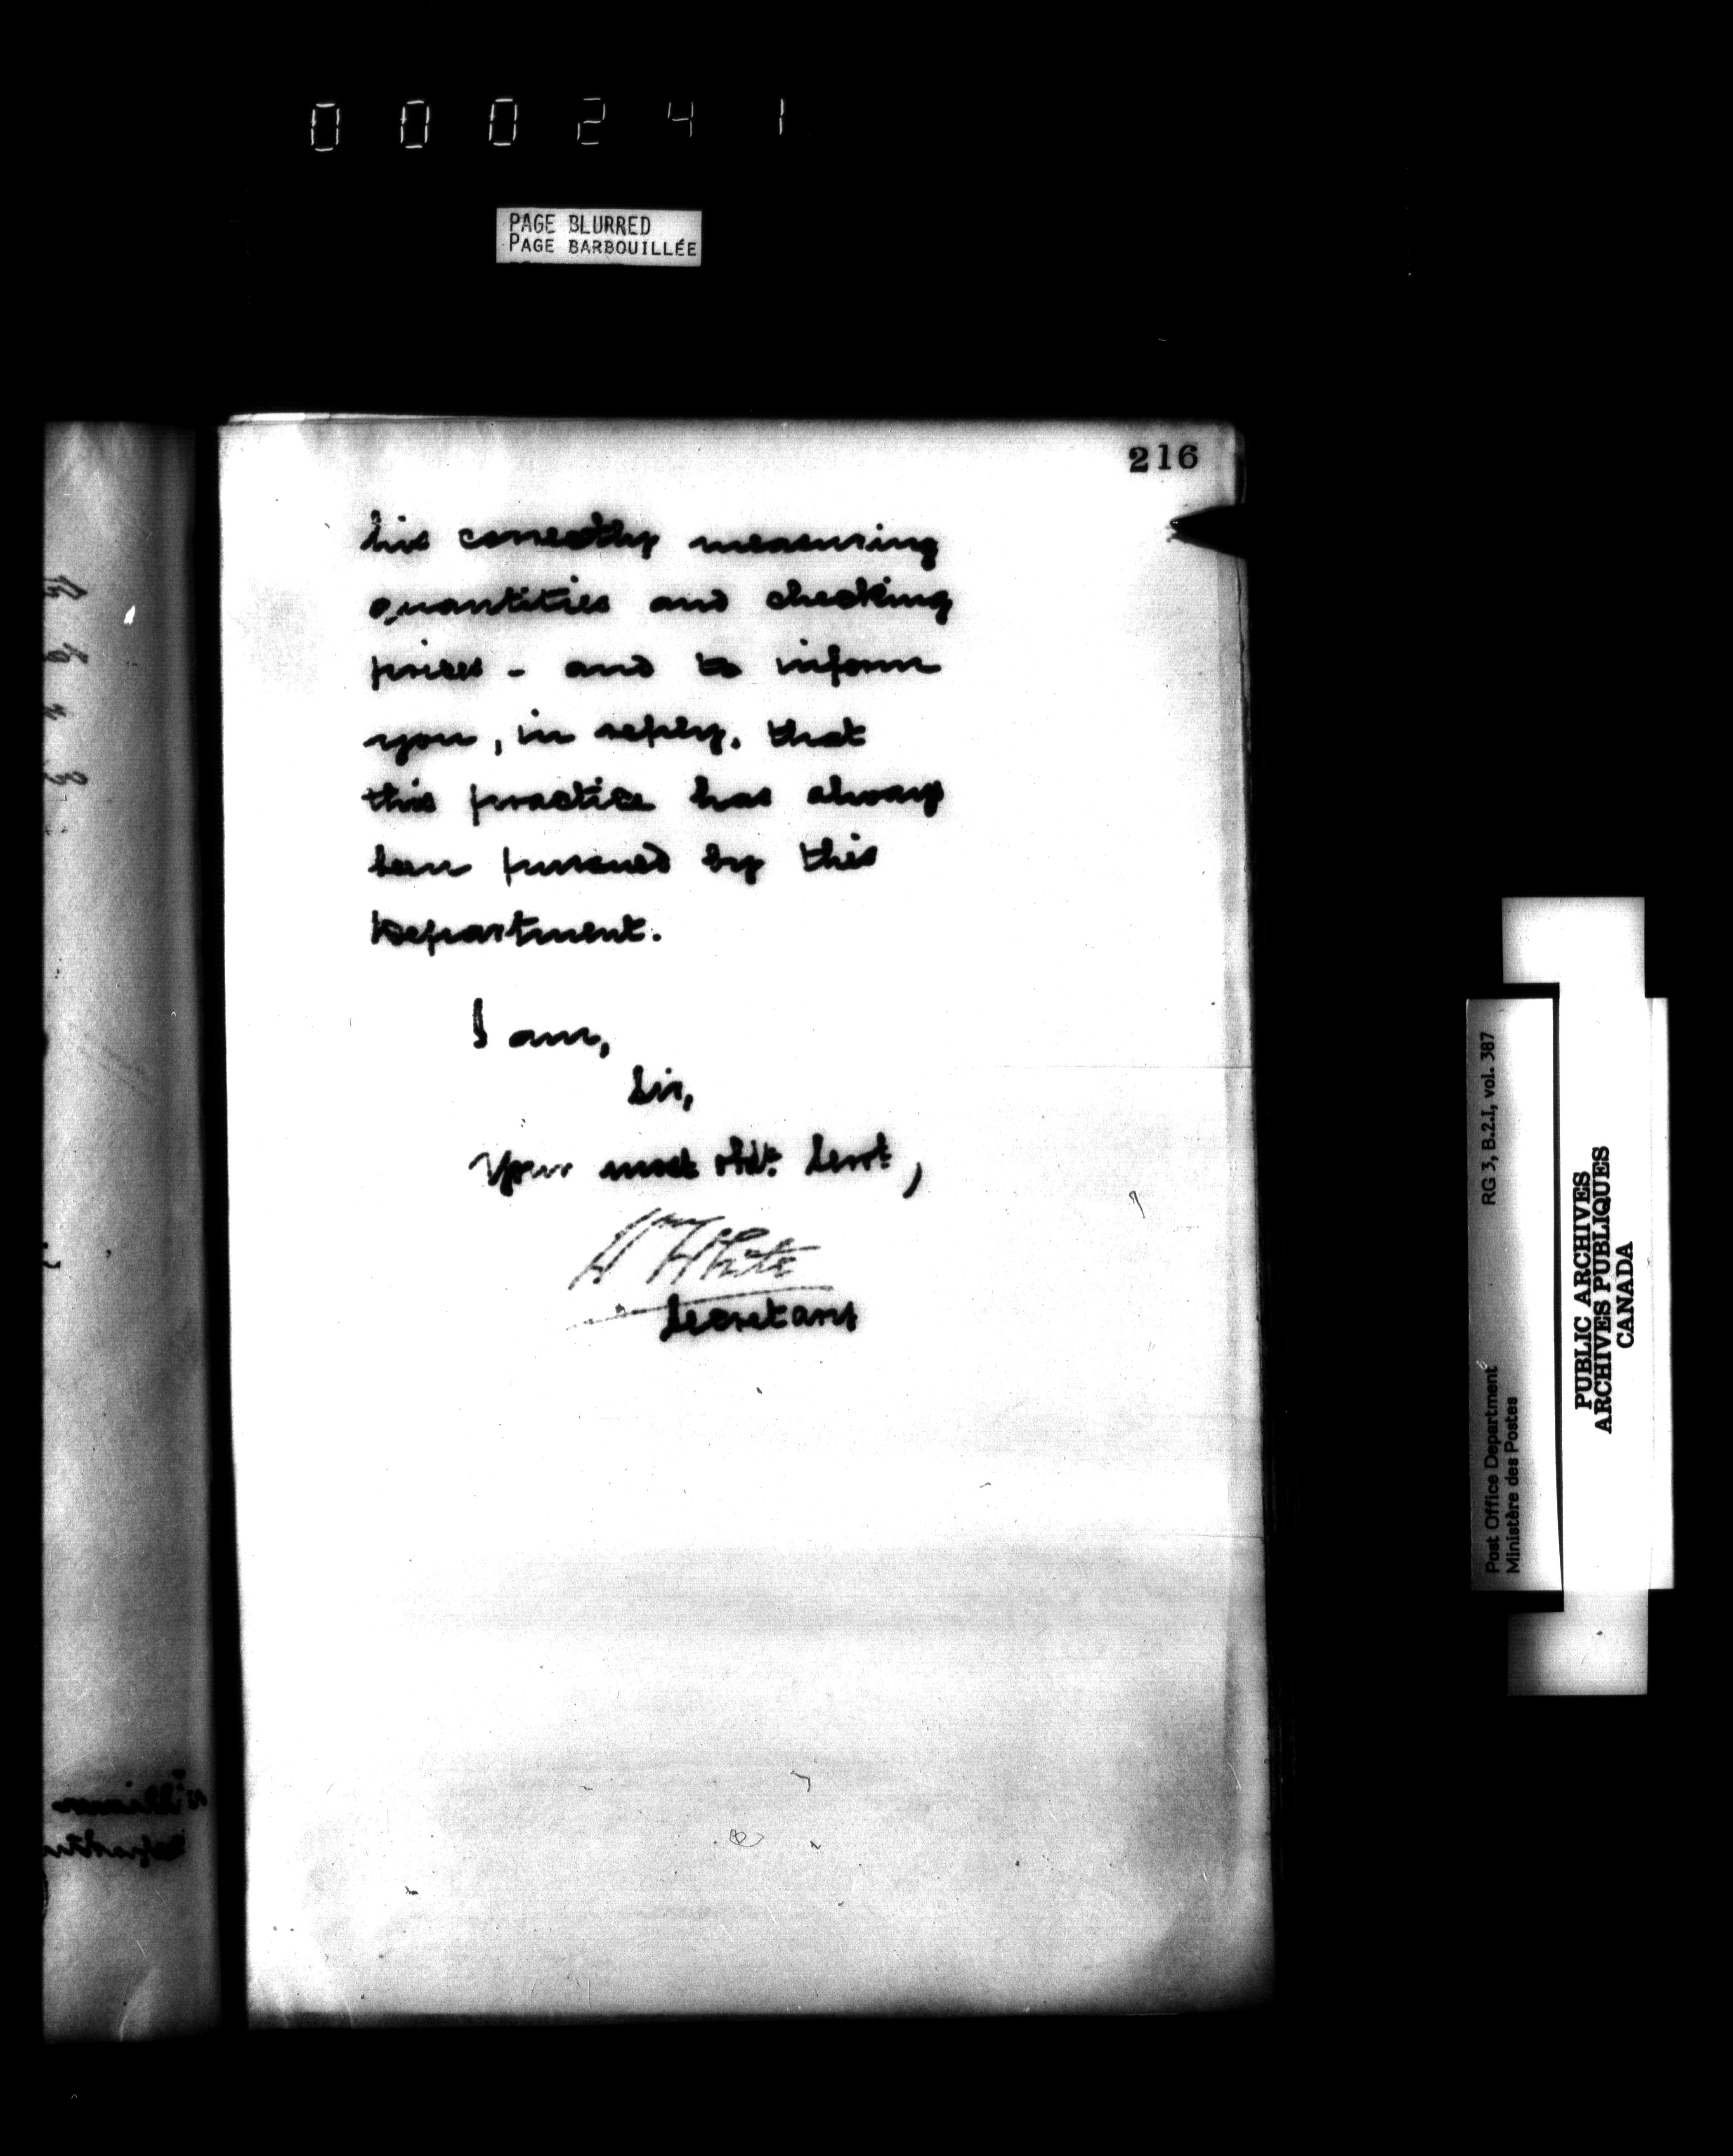 000241
PAGE BLURRED
PAGE BARBOUILLÉE
216
his correctly measuring
quantities and checking
prices - and to inform
you, in reply, that
this practice has always
been pursued by this
Department.
I am,
Sir,
Your most obdt. Servt,
White
Secretary
RG 3, B.2.I, vol. 387
Post Office Department
Ministère des Postes
PUBLIC ARCHIVES
ARCHIVES PUBLIQUES
CANADA